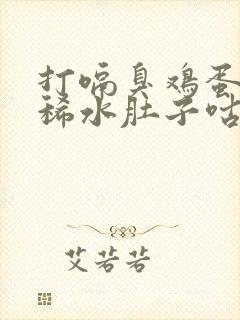 打嗝臭鸡蛋
稀水肚子咕
艾若若